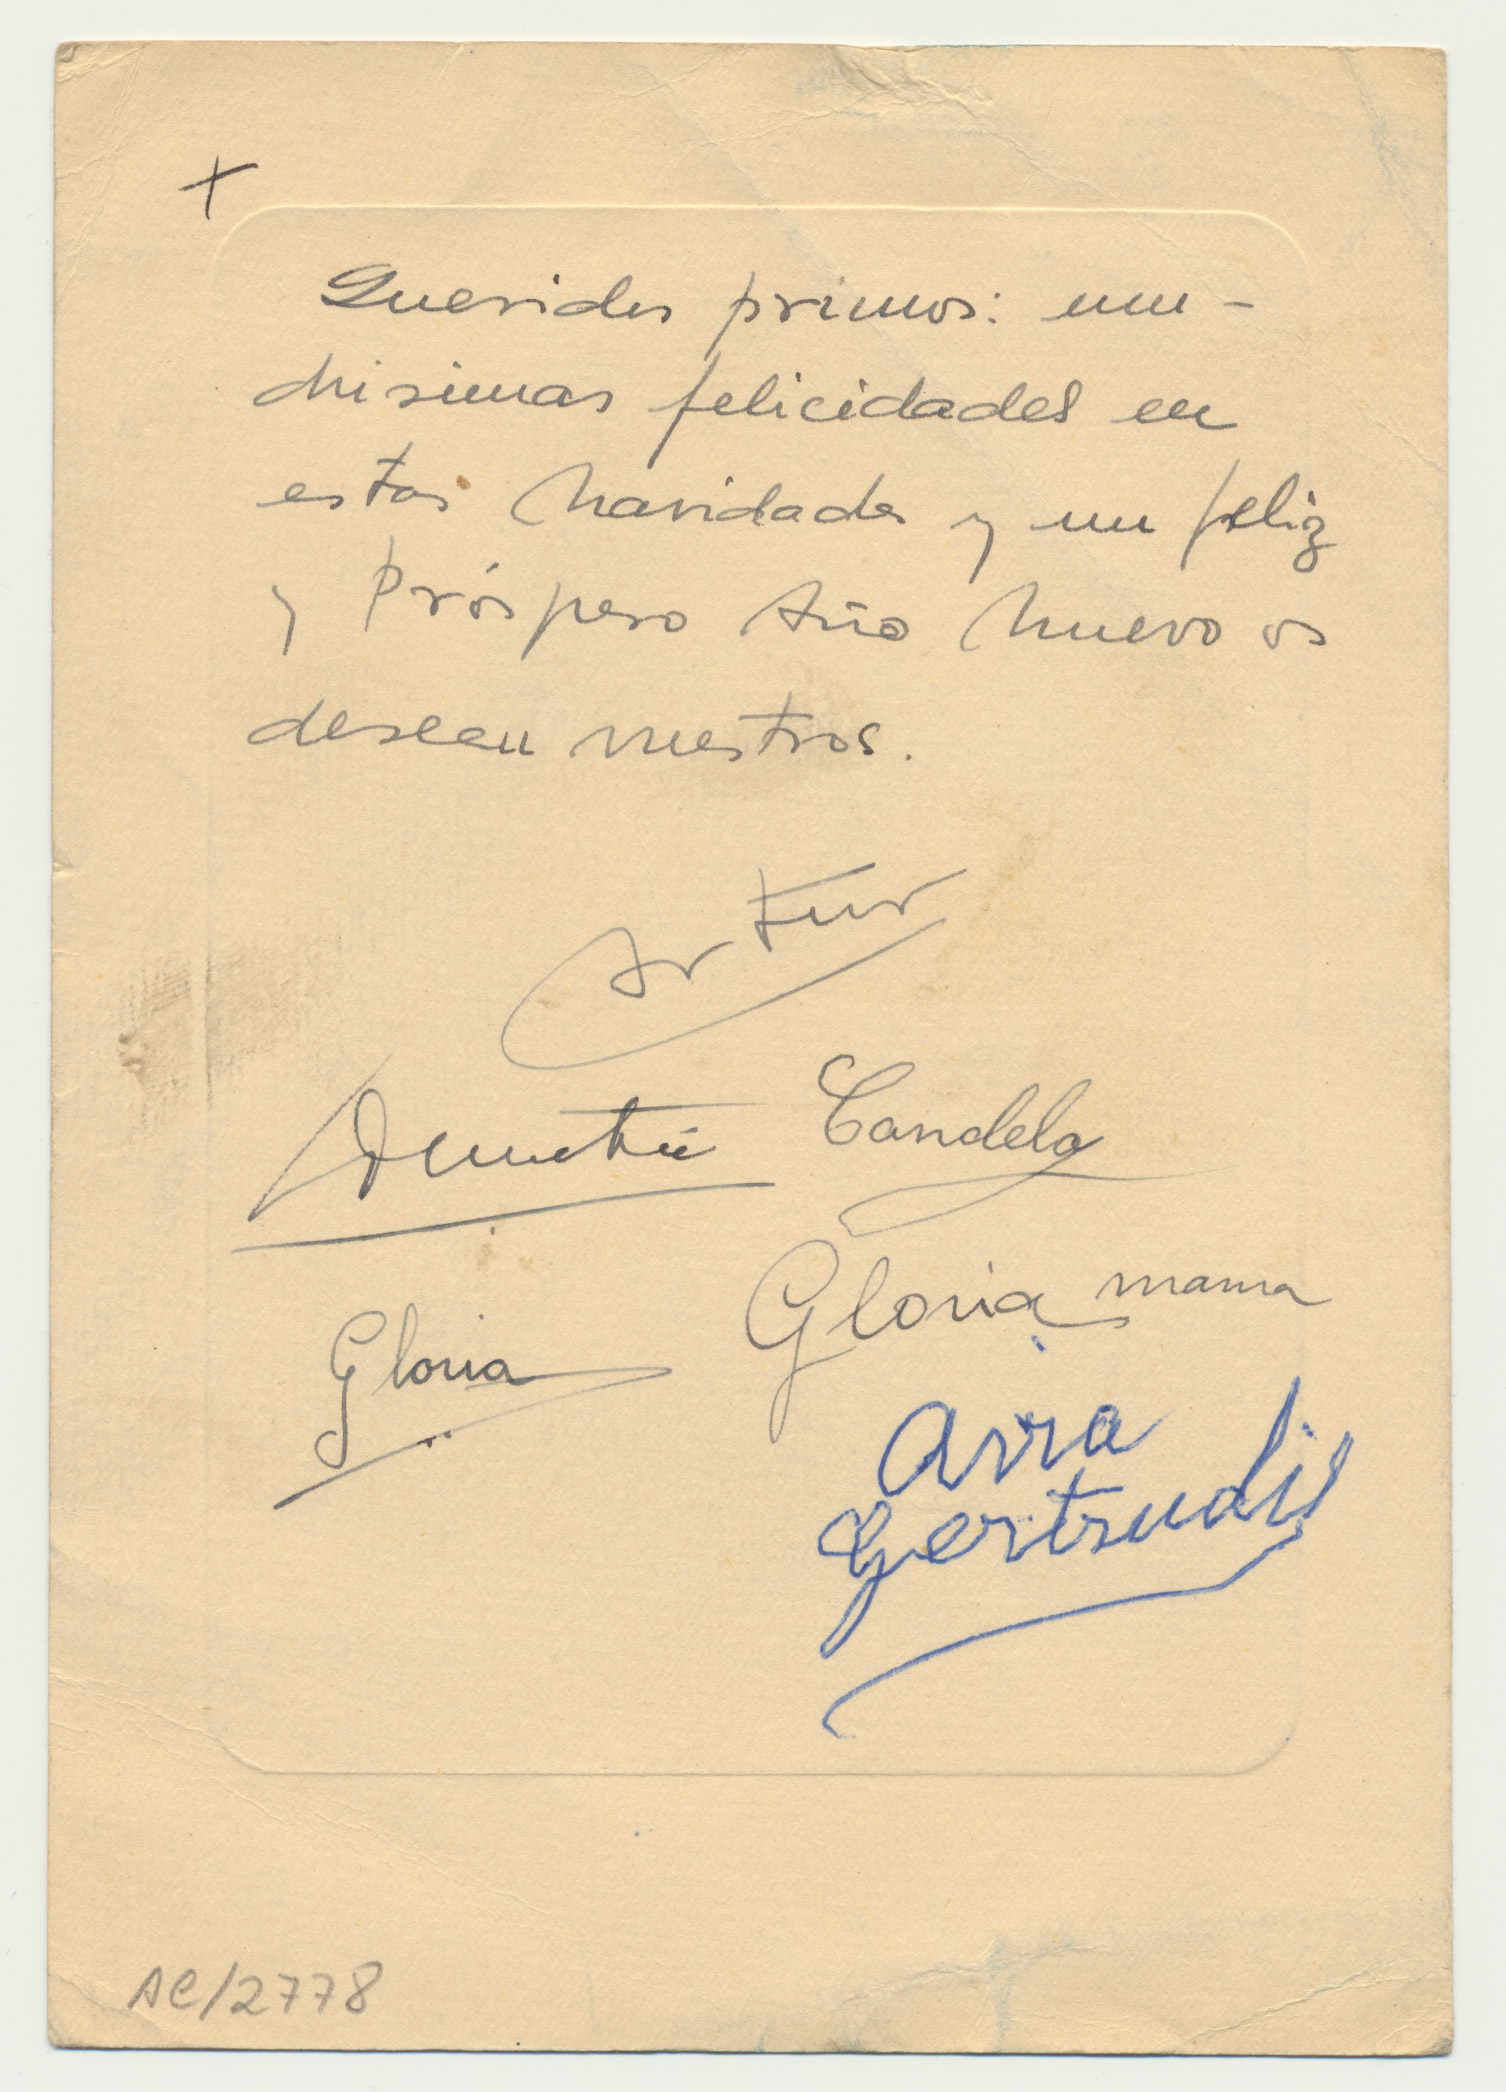 +
Queridos primos: mu-
chisimas felicidades en
estas Navidades y un feliz
y Próspero Año Nuevo os
desean nuestros.
Artur
Candela
Gloria mama
Gloria
Arra
Gertrudis
AC/2778